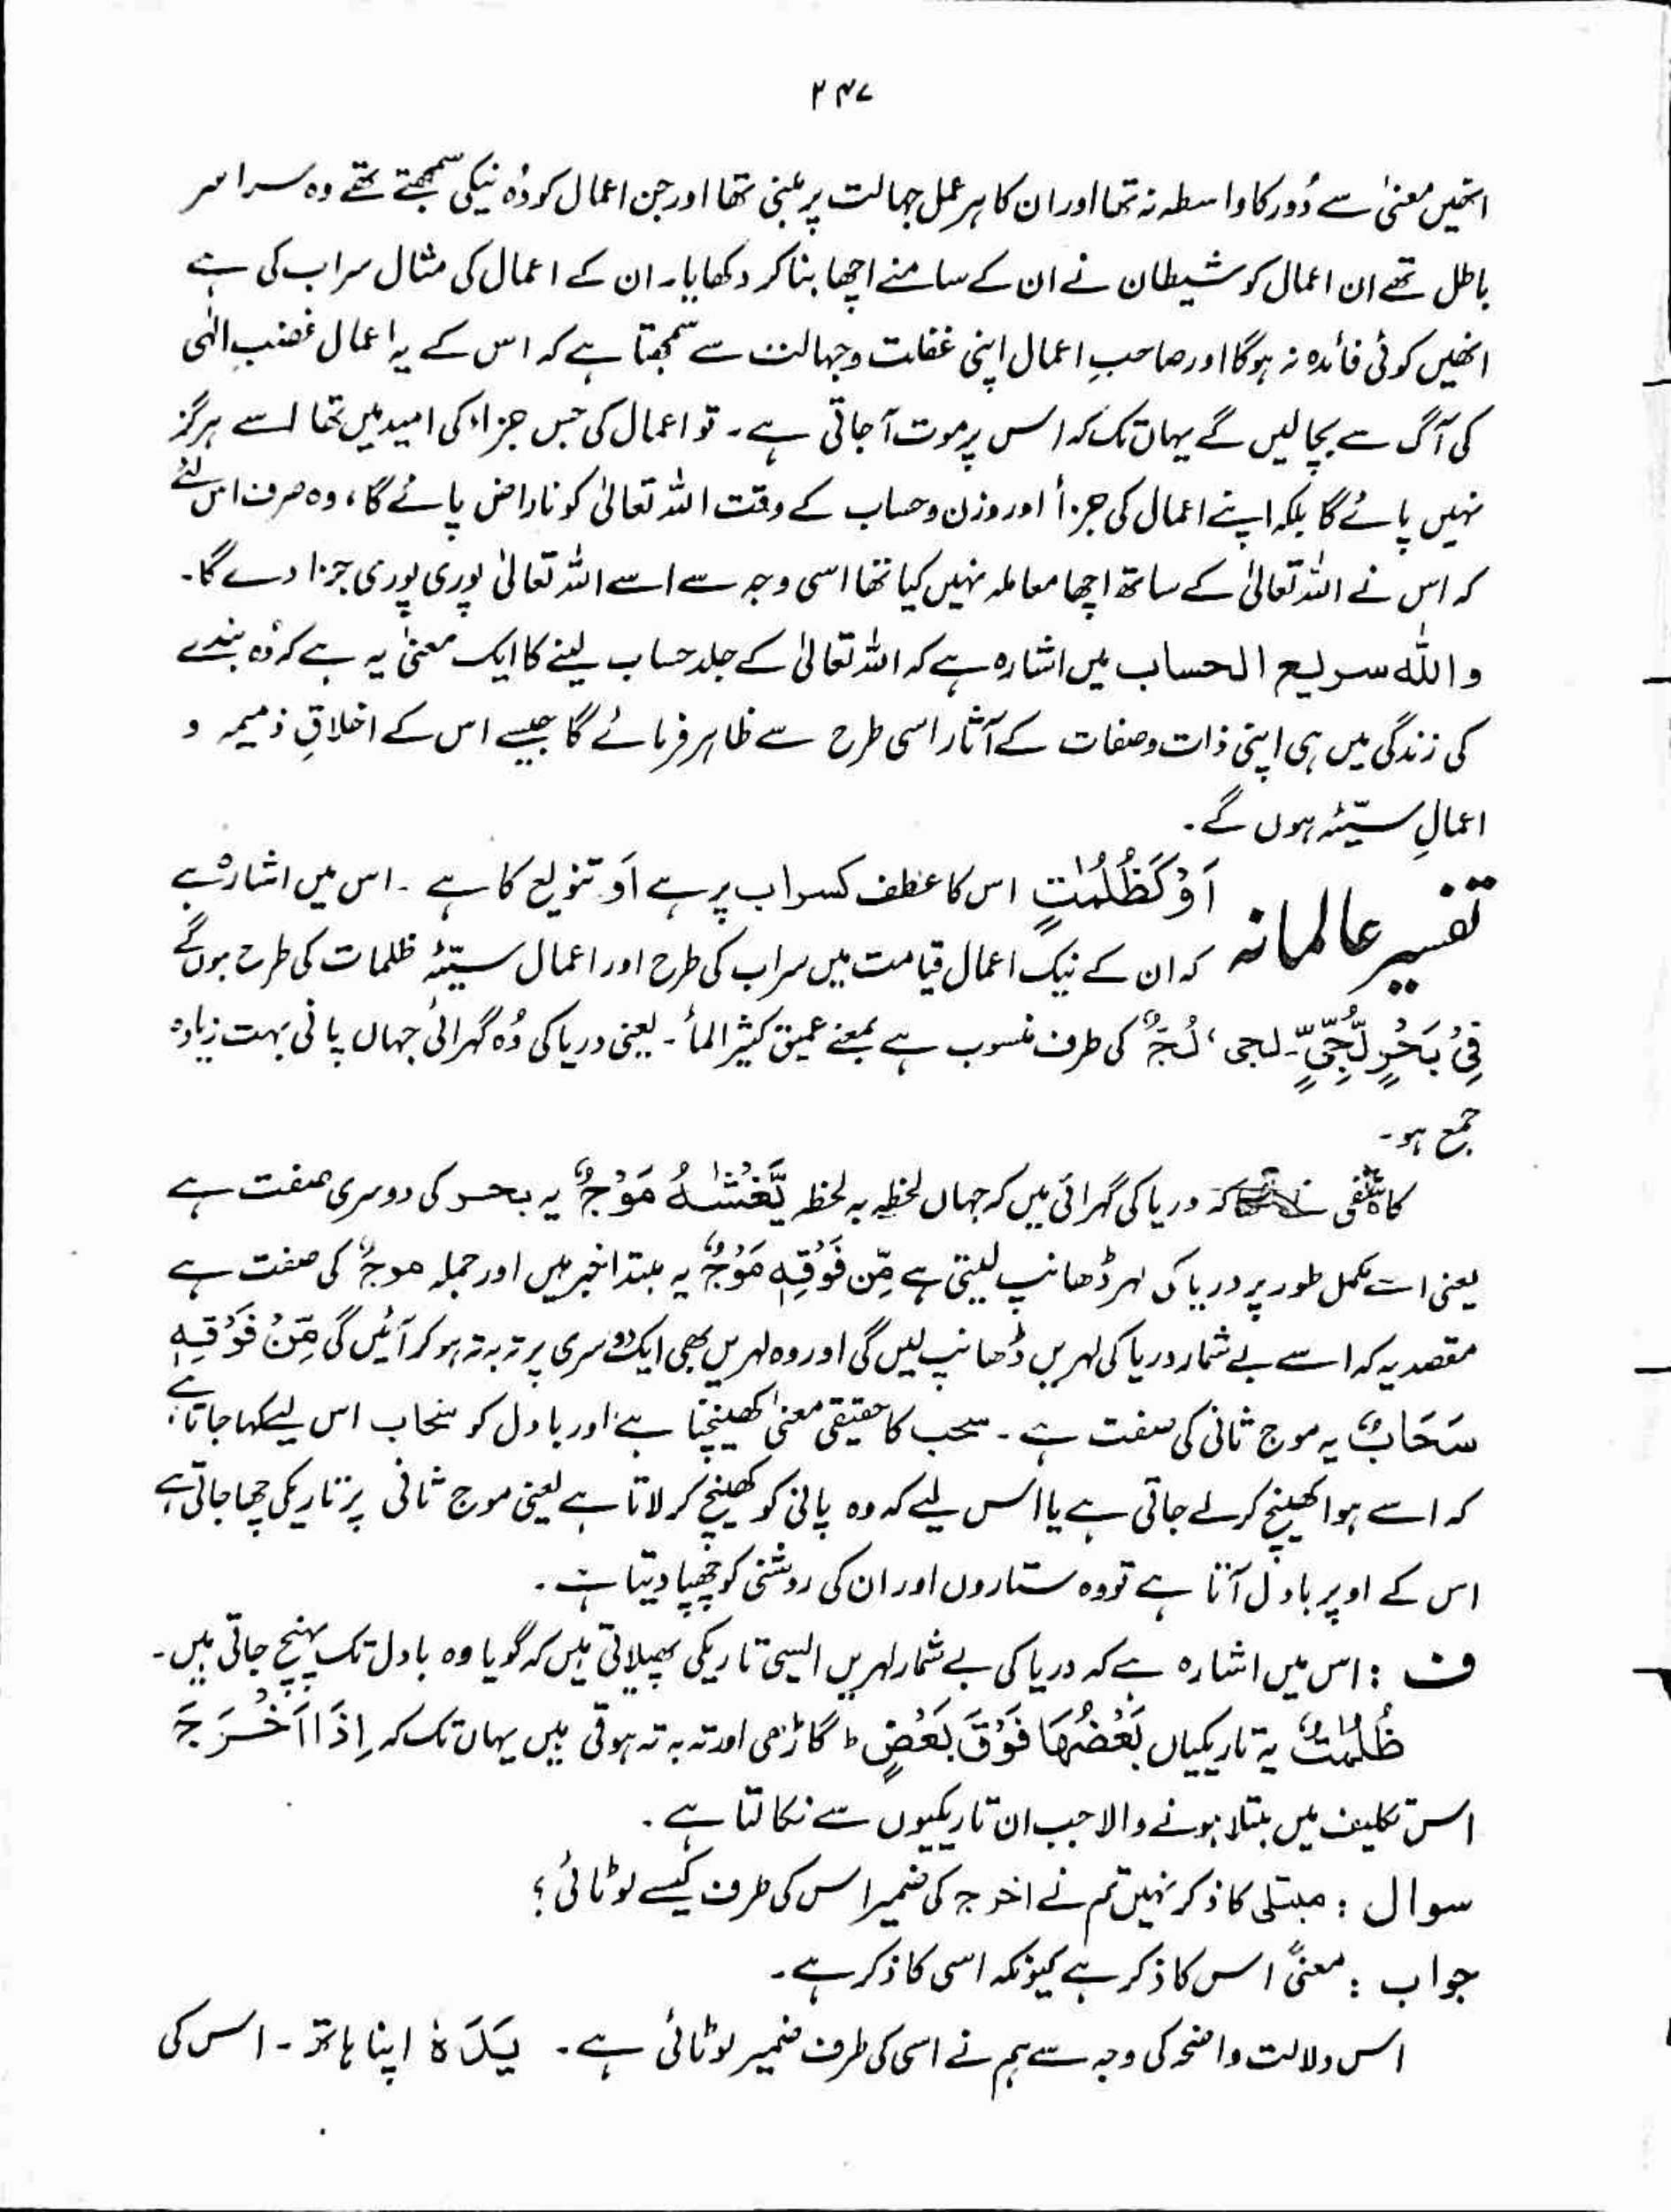 ۲۴۷
انھیں معنیٰ سے دُور کا واسطہ نہ تھا اور ان کا ہر عمل جہالت پر مبنی تھا اور جن اعمال کو وُہ نیکی سمجھتے تھے وہ سراسر
باطل تھے ان اعمال کو شیطان نے ان کے سامنے اچھا بنا کر دکھایا۔ ان کے اعمال کی مثال سراب کی ہے
انھیں کوئی فائدہ نہ ہوگا اور صاحبِ اعمال اپنی غفلت وجہالت سے سمجھتا ہے کہ اس کے یہ اعمال غضبِ الٰہی
کی آگ سے بچالیں گے یہاں تک کہ اس پر موت آجاتی ہے۔ تو اعمال کی جس جزاء کی امید میں تھا اسے ہرگز
نہیں پائے گا بلکہ اپنے اعمال کی جزأ اور وزن وحساب کے وقت اللہ تعالیٰ کو ناراض پائے گا، وہ صرف اس لئے
کہ اس نے اللہ تعالیٰ کے ساتھ اچھا معاملہ نہیں کیا تھا اسی وجہ سے اسے اللہ تعالیٰ پوری پوری جزا دے گا۔
واللہ سریع الحساب میں اشارہ ہے کہ اللہ تعالیٰ کے جلد حساب لینے کا ایک معنیٰ یہ ہے کہ وُہ بندے
کی زندگی میں ہی اپنی ذات وصفات کے آثار اسی طرح سے ظاہر فرمائے گا جیسے اس کے اخلاقِ ذمیمہ و
اعمالِ سیّئہ ہوں گے۔
تفسیر عالمانہ اَوْ كَظُلُمٰتٍ اس کا عطف کسراب پر ہے اَو تنویع کا ہے۔ اس میں اشارہ ہے
کہ ان کے نیک اعمال قیامت میں سراب کی طرح اور اعمال سیّئہ ظلمات کی طرح ہوں گے
فِیْ بَحْرٍ لُّجِّیٍّ۔ لجی، لُجٌّ کی طرف منسوب ہے بمعنے عمیق کثیر المأ۔ یعنی دریا کی وُہ گہرائی جہاں پانی بہت زیادہ
جمع ہو۔
کاشفی کہ دریا کی گہرائی میں کہ جہاں لحظہ بہ لحظہ یَّغْشٰىهُ مَوْجٌ یہ بحر کی دوسری صفت ہے
یعنی اسے مکمل طور پر دریا کی لہر ڈھانپ لیتی ہے مِّن فَوْقِهٖ مَوْجٌ یہ مبتدا خبر ہیں اور جملہ موجٌ کی صفت ہے
مقصد یہ کہ اسے بے شمار دریا کی لہریں ڈھانپ لیں گی اور وہ لہریں بھی ایک دوسری پر تہ بہ تہ ہو کر آئیں گی مِّنْ فَوْقِهٖ
سَحَابٌ یہ موج ثانی کی صفت ہے۔ سحب کا حقیقی معنیٰ کھینچنا ہے اور بادل کو سحاب اس لیے کہا جاتا ہے
کہ اسے ہوا کھینچ کر لے جاتی ہے یا اس لیے کہ وہ پانی کو کھینچ کر لاتا ہے یعنی موج ثانی پر تاریکی چھا جاتی ہے
اس کے اوپر بادل آتا ہے تو وہ ستاروں اور ان کی روشنی کو چھپا دیتا ہے۔
ف : اس میں اشارہ ہے کہ دریا کی بے شمار لہریں ایسی تاریکی پھیلاتی ہیں کہ گویا وہ بادل تک پہنچ جاتی ہیں۔
ظُلُمٰتٌ یہ تاریکیاں بَعْضُهَا فَوْقَ بَعْضٍ ط گاڑھی اور تہ بہ تہ ہوتی ہیں یہاں تک کہ اِذَا اَخْرَجَ
اس تکلیف میں مبتلا ہونے والا جب ان تاریکیوں سے نکالتا ہے۔
سوال : مبتلی کا ذکر نہیں تم نے اخرج کی ضمیر اس کی طرف کیسے لوٹائی؟
جواب : معنیً اس کا ذکر ہے کیونکہ اسی کا ذکر ہے۔
اس دلالت واضحہ کی وجہ سے ہم نے اسی کی طرف ضمیر لوٹائی ہے۔ یَدَهٗ اپنا ہاتھ۔ اس کی